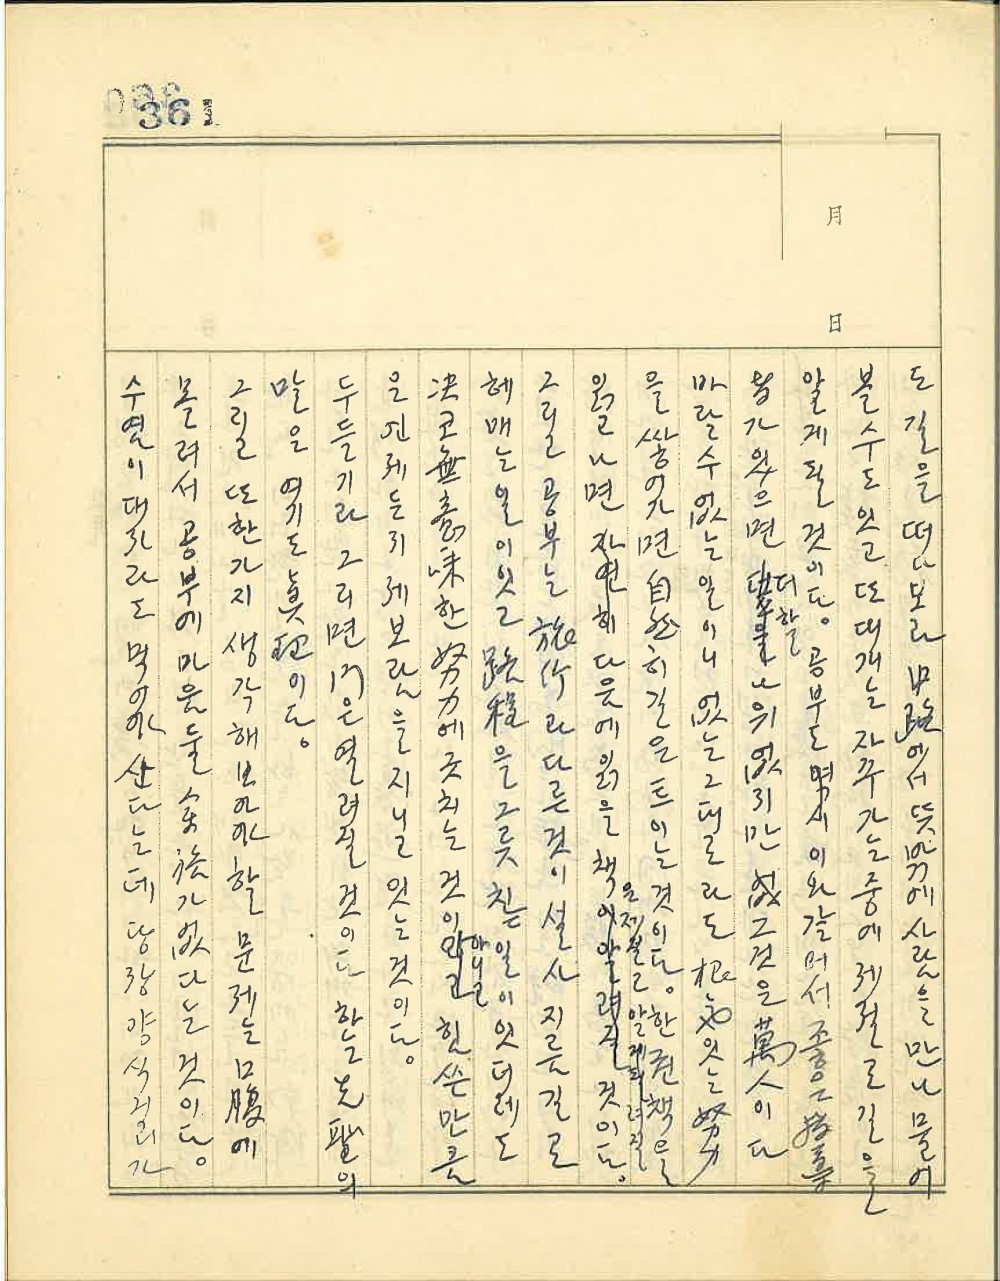 36
月
日
도 길을 떠나보라 中路에서 뜻밖에 사람을 만나 물어
볼수도 있고 또 대개는 자꾸 가는 중에 제절로 길을
알게 될 것이다. 공부도 역시 이와 같어서 좋은
가 있으면 더할 나위 없지만 그것은 萬人이 다
바랄수 없는 일이니 없는 그대로라도 根氣있는 努力
을 쌓어가면 自然히 길은 트이는 것이다. 한권 책을
읽고나면 자연히 다음에 읽을 책은 제절로 알게되려질 것이다.
그릴 공부는 旅行과 다른 것이 설사 지름길로
헤매는 일이 잇고 路程을 그릇 친 일이 잇더래도
決코 無意味한 努力에 긋치는 것이 아니고 힘쓴만큼
은 언제든지 제보람을 지닐 잇는 것이다.
두들기라 그리면 門은 열려질 것이다 한 先聖의
말은 여기도 眞理이다.
그릴 또 한가지 생각해 보아야 할 문제는 口腹에
몰려서 공부에 마음둘 余裕가 없다는 것이다.
수염이 대자라도 먹어야 산다는데 당장 량식거리가